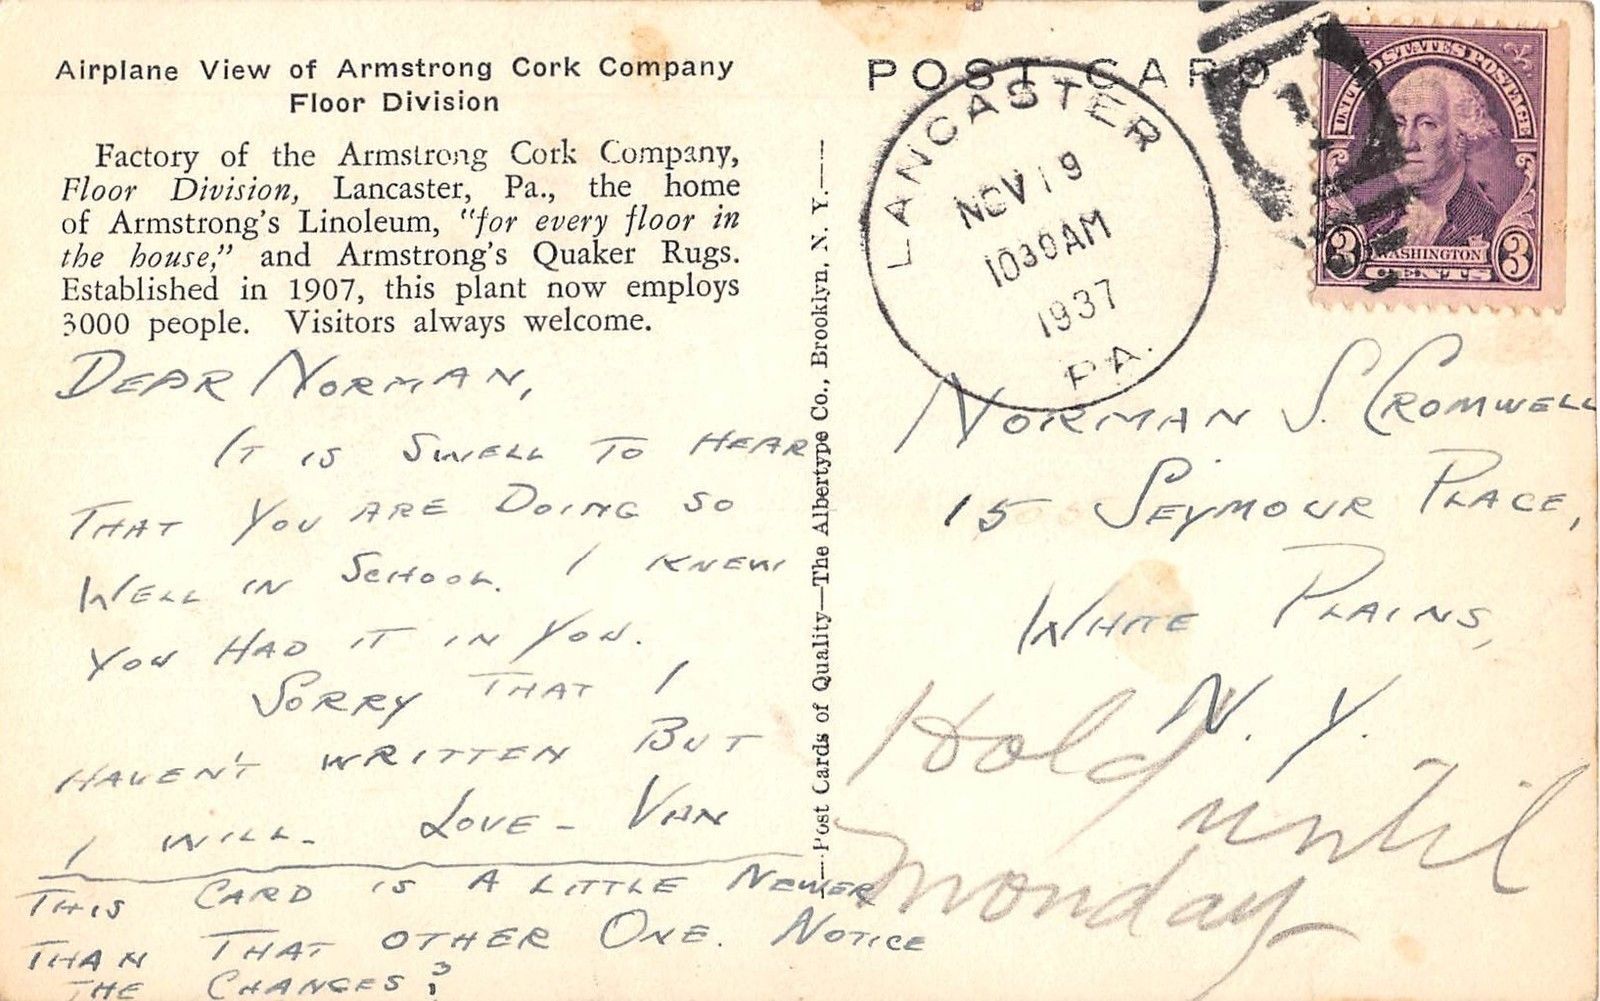 Airplane View of Armstrong Cork Company
Floor Division
Factory of the Armstrong Cork Company,
Floor Division, Lancaster, Pa., the home
of Armstrong's Linoleum, "for every floor in
the house," and Armstrong's Quaker Rugs.
Established in 1907, this plant now employs
3000 people. Visitors always welcome.
DEAR NORMAN,
IT IS SWELL TO HEAR
THAT YOU ARE DOING SO
WELL IN SCHOOL. I KNEW
YOU HAD IT IN YOU.
SORRY THAT I
HAVEN'T WRITTEN BUT
I WILL - LOVE - VAN
THIS CARD IS A LITTLE NEWER
THAN THAT OTHER ONE. NOTICE
THE CHANGES?
—Post Cards of Quality—The Albertype Co., Brooklyn, N. Y.—
POST CARD
LANCASTER
NOV 19
1030 AM
1937
PA.
UNITED STATES POSTAGE
WASHINGTON
3 CENTS 3
NORMAN S. CROMWELL
15 SEYMOUR PLACE,
WHITE PLAINS,
N. Y.
Hold until
monday